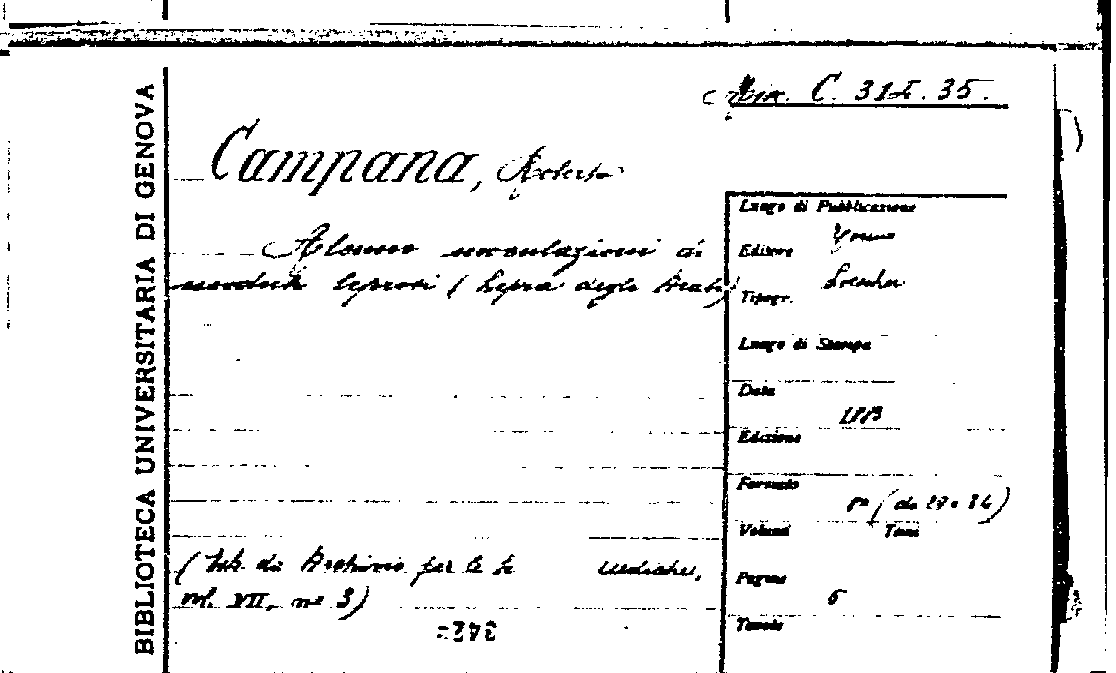 BIBLIOTECA UNIVERSITARIA DI GENOVA
Misc. C. 315. 35.
Campana, Roberto
Alcune inoculazioni di
noduli leprosi (Lepra degli Arabi)
Luogo di Pubblicazione
Editore
Loescher
Tipogr.
Luogo di Stampa
Data
1883
Edizione
Formato
8º (da 29 a 34)
Volumi Tomi
Pagine
6
Tavole
(Estr. da Archivio per le Sc mediche,
vol. VII, nº 3)